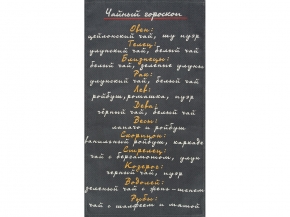 Чайный гороскоп
Овен:
цейлонский чай, шу пуэр
Телец:
улунский чай, белый чай
Близнецы:
белый чай, зеленые улуны
Рак:
улунский чай, белый чай
Лев:
ройбуш, ромашка, пуэр
Дева:
чёрный чай, белый чай
Весы:
лапачо и ройбуш
Скорпион:
ванильный ройбуш, каркаде
Стрелец:
чай с бергамотом, улун
Козерог:
черный чай, пуэр
Водолей:
зеленый чай с жень-шенем
Рыбы:
чай с шалфеем и мятой